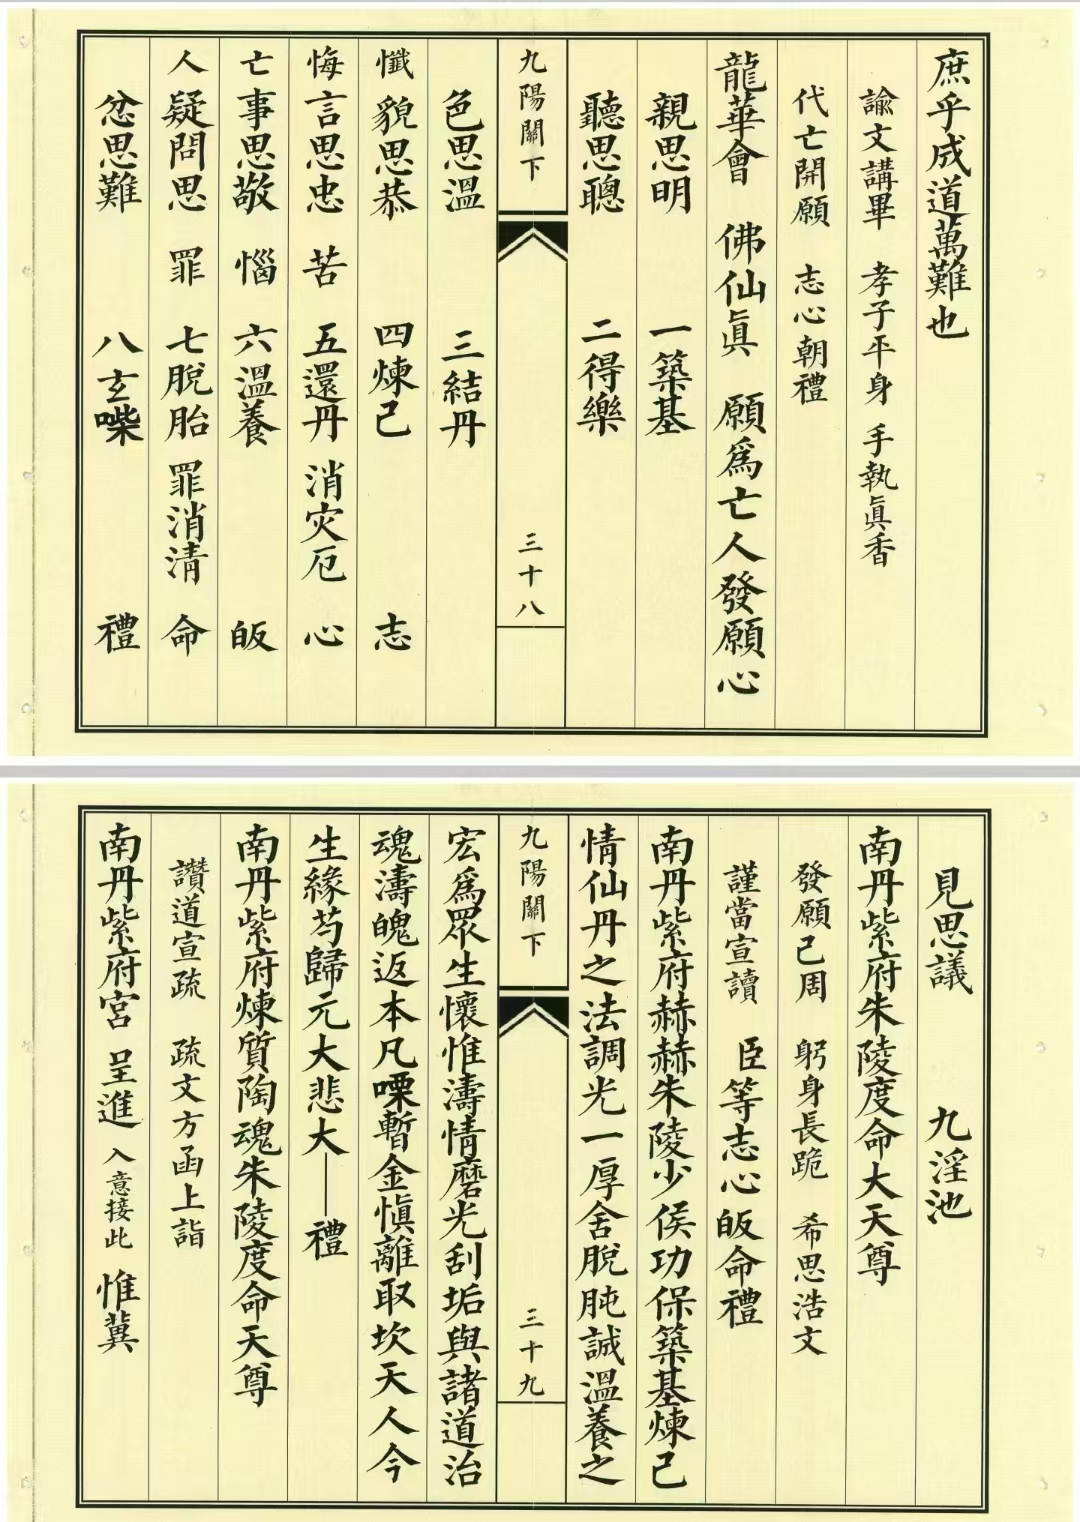 庶乎成道萬難也
諭文講畢 孝子平身 手執眞香
代亡開願 志心朝禮
龍華會 佛仙眞 願爲亡人發願心
親思明 一築基
聽思聰 二得樂
九陽關下 三十八
色思溫 三結丹
懺貌思恭 四煉己 志
悔言思忠苦 五還丹消灾厄 心
亡事思敬惱 六溫養 皈
人疑問思罪 七脫胎罪消清 命
忿思難 八玄喍 禮
見思議 九淫池
南丹紫府朱陵度命大天尊
發願已周 躬身長跪 希思浩文
謹當宣讀 臣等志心皈命禮
南丹紫府赫赫朱陵少侯功保築基煉己
情仙丹之法調光一厚舍脫肫誠溫養之
九陽關下 三十九
宏爲眾生懷惟濤情磨光刮垢與諸道治
魂濤魄返本凡㗚暫金愼離取坎天人今
生緣芍歸元大悲大——禮
南丹紫府煉質陶魂朱陵度命天尊
讚道宣疏 疏文方函上詣
南丹紫府宮 呈進 入意接此 惟冀